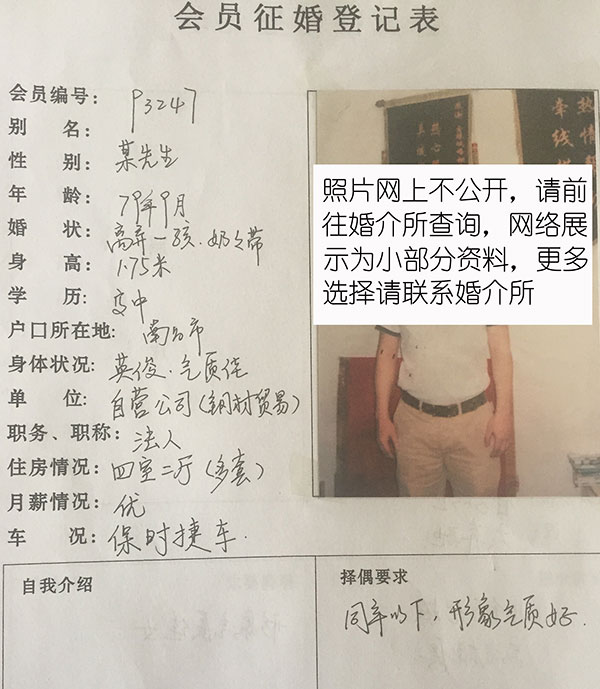 会员征婚登记表
会员编号: P3247
别 名: 某先生
性 别:
年 龄: 79年9月
婚 状: 离异一孩.奶奶带
身 高: 1.75米
学 历: 高中
户口所在地: 南昌市
身体状况: 英俊.气质佳
单 位: 自营公司(钢材贸易)
职务、职称: 法人
住房情况: 四室二厅(多套)
月薪情况: 优
车 况: 保时捷车.
照片网上不公开，请前
往婚介所查询，网络展
示为小部分资料，更多
选择请联系婚介所
热情
牵线
自我介绍
择偶要求
同年以下，形象气质好.